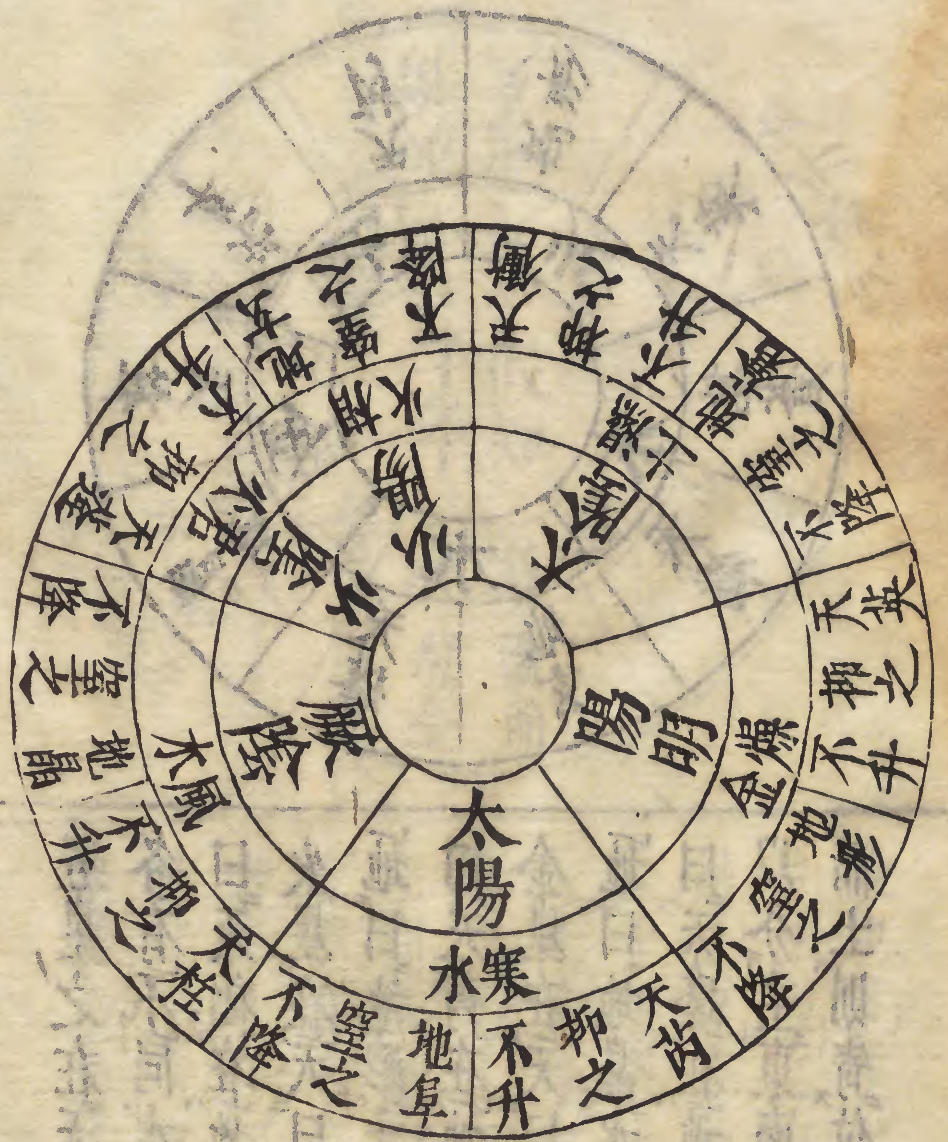 太陽
寒水
天芮抑之不升
地阜窒之不降
厥陰
風木
天柱抑之不升
地晶窒之不降
少陰
君火
天蓬抑之不升
少陽
相火
地玄窒之不降
太陰
濕土
天衝抑之不升
地蒼窒之不降
陽明
燥金
天英抑之不升
地彤窒之不降